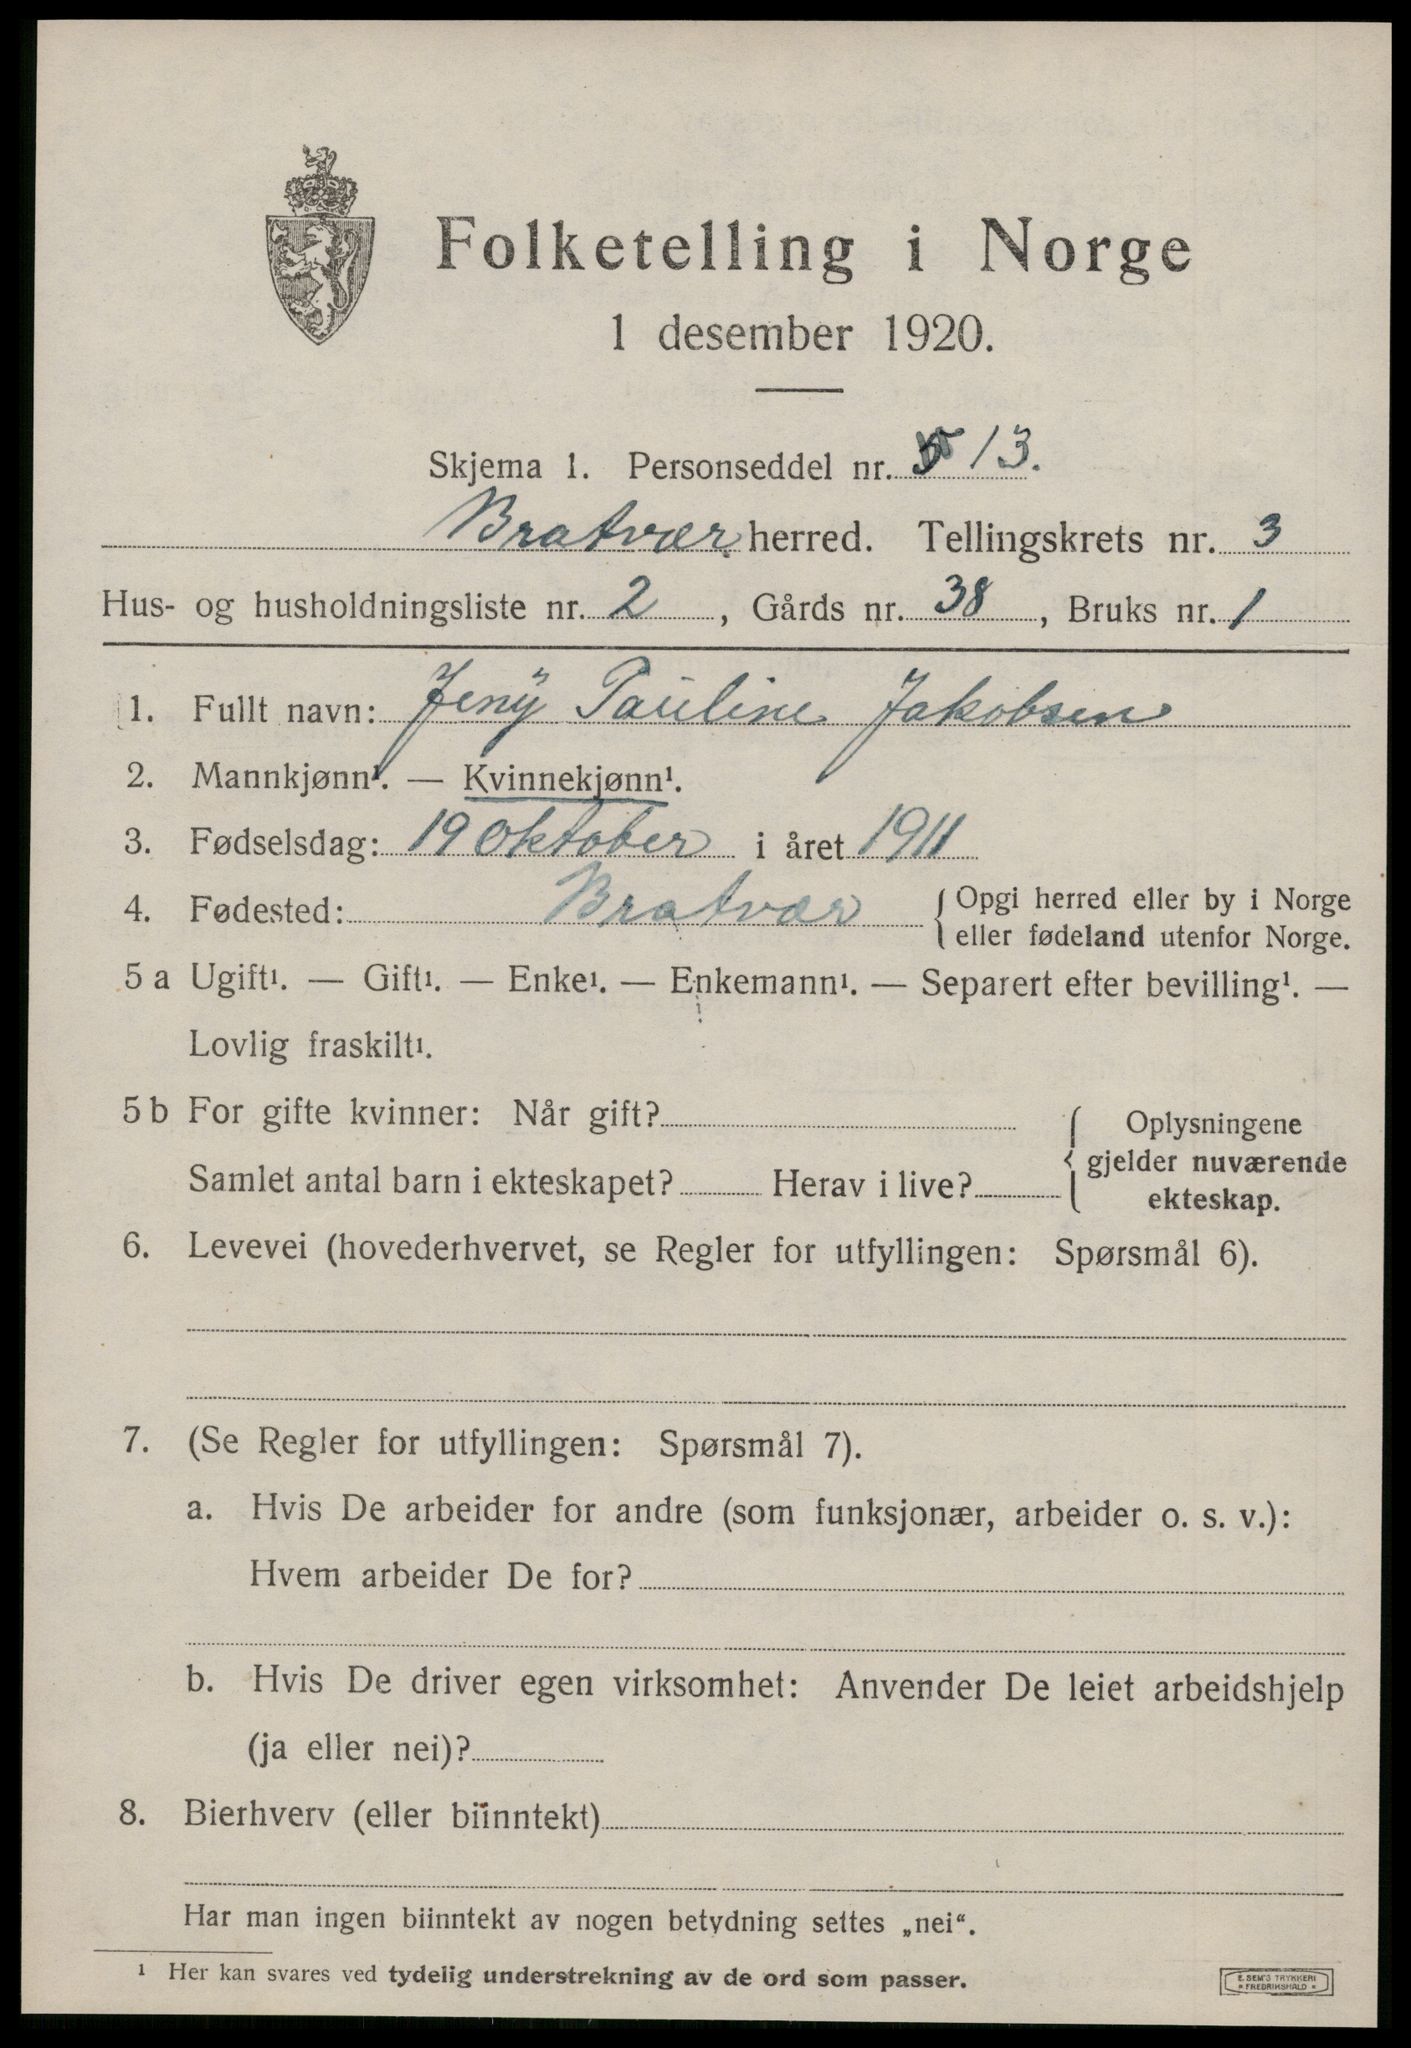 Folketelling i Norge
1 desember 1920.
Skjema 1. Personseddel nr. 13.
Bratvær herred. Tellingskrets nr. 3
Hus- og husholdningsliste nr. 2, Gårds nr. 38, Bruks nr. 1
1. Fullt navn: Jenÿ Pauline Jakobsen
2. Mannkjønn¹. — Kvinnekjønn¹.
3. Fødselsdag: 19 Oktober i året 1911
4. Fødested: Bratvær { Opgi herred eller by i Norge
eller fødeland utenfor Norge.
5 a Ugift¹. — Gift¹. — Enke¹. — Enkemann¹. — Separert efter bevilling¹. —
Lovlig fraskilt¹.
5 b For gifte kvinner: Når gift?
Samlet antal barn i ekteskapet? Herav i live?
{ Oplysningene
gjelder nuværende
ekteskap.
6. Levevei (hovederhvervet, se Regler for utfyllingen: Spørsmål 6).
7. (Se Regler for utfyllingen: Spørsmål 7).
a. Hvis De arbeider for andre (som funksjonær, arbeider o. s. v.):
Hvem arbeider De for?
b. Hvis De driver egen virksomhet: Anvender De leiet arbeidshjelp
(ja eller nei)?
8. Bierhverv (eller biinntekt)
Har man ingen biinntekt av nogen betydning settes „nei“.
¹ Her kan svares ved tydelig understrekning av de ord som passer.
E. SEM'S TRYKKERI
FREDRIKSHALD